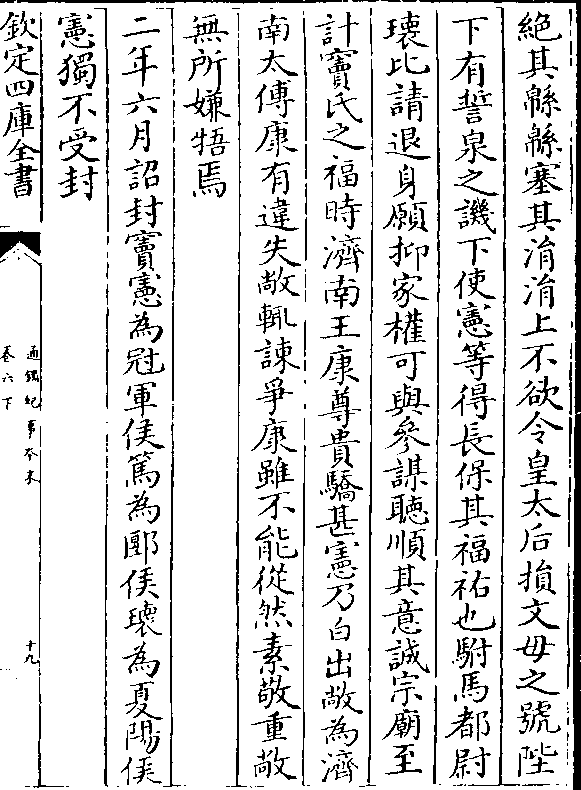 絶其緜緜塞其涓涓上不欲令皇太后損文母之號陛
下有誓泉之譏下使憲等得長保其福祐也駙馬都尉
瓌比請退身願抑家權可與參謀聽順其意誠宗廟至
計竇氏之福時濟南王康尊貴驕甚憲乃白出敞為濟
南太傅康有違失敞輒諫爭康雖不能從然素敬重敞
無所嫌牾焉
二年六月詔封竇憲為冠軍侯篤為郾侯瓌為夏陽侯
憲獨不受封
欽定四庫全書
通鑑紀事本末
卷六下
十九